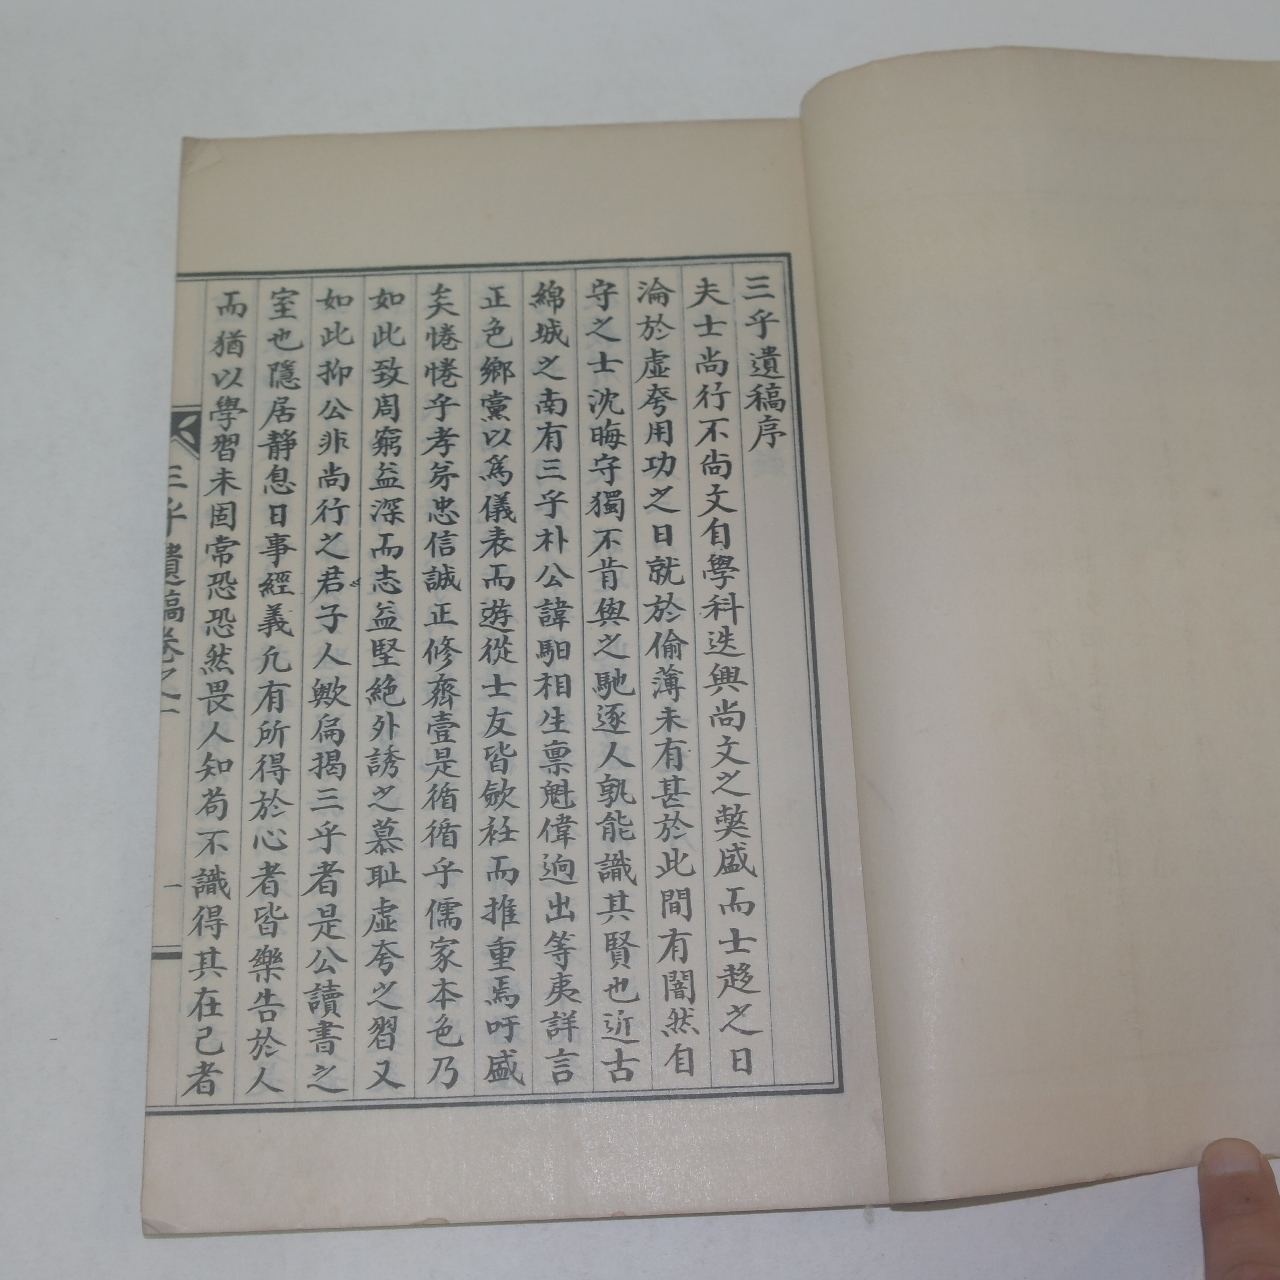 三乎遺稿序
夫士尚行不尚文自學科迭興尚文之獘盛而士趍之日
淪於虛夸用功之日就於偷薄未有甚於此間有闇然自
守之士沈晦守獨不肯與之馳逐人孰能識其賢也近古
綿城之南有三乎朴公諱馹相生禀魁偉逈出等夷詳言
正色鄉黨以爲儀表而遊從士友皆斂衽而推重焉吁盛
矣惓惓乎孝弟忠信誠正修齊壹是循循乎儒家本色乃
如此致周窮益深而志益堅絶外誘之慕耻虛夸之習又
如此抑公非尚行之君子人歟扁揭三乎者是公讀書之
室也隱居靜息日事經義凢有所得於心者皆樂告於人
而猶以學習未固常恐恐然畏人知苟不識得其在己者
三乎遺稿卷之一
一